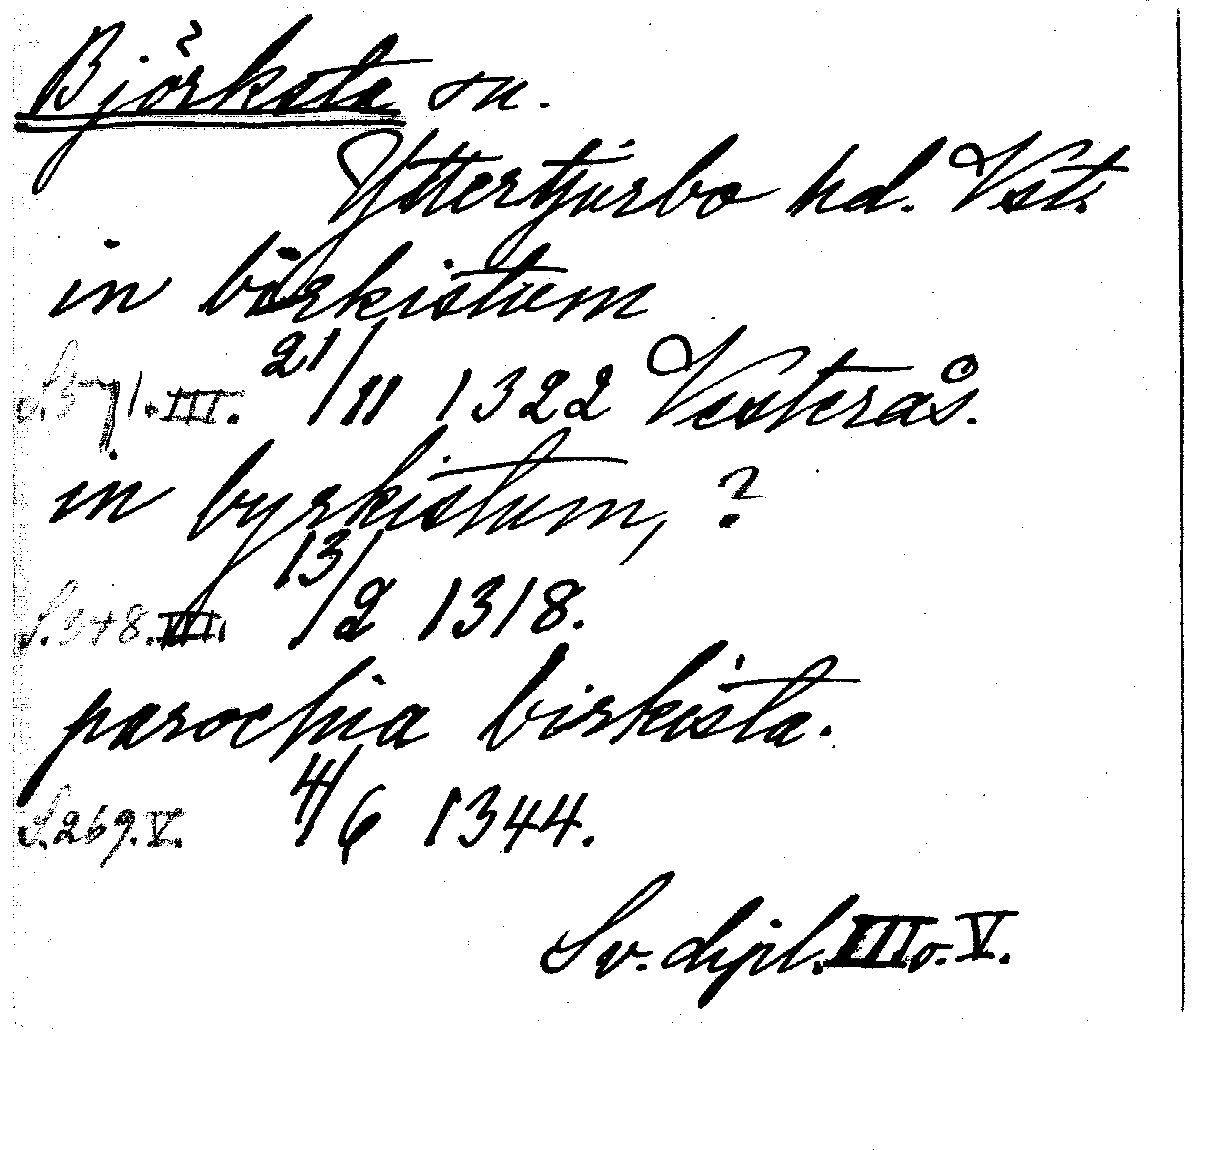 Björksta sn.
Yttertjurbo hd. Vstm.
in birkistum
S. 571. III. 21/11 1322 Vesterås.
in byrkistum, ?
S. 348. III. 13/2 1318.
parochia birkista.
S. 269. V. 4/6 1344.
Sv. dipl. III o. V.